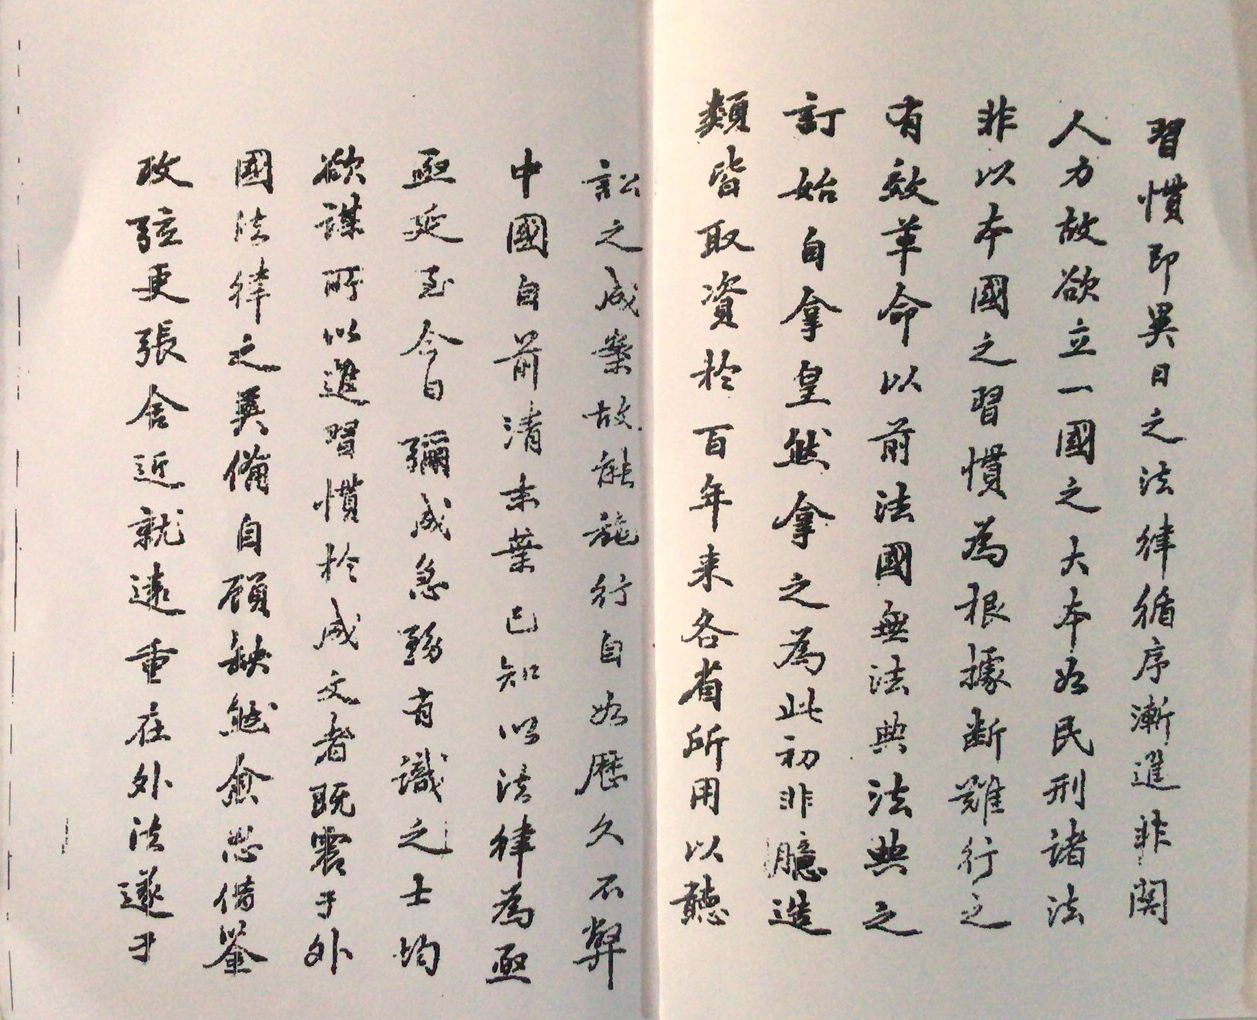 習慣即異日之法律循序漸進非関
人力故欲立一國之大本如民刑諸法
非以本國之習慣為根據斷難行之
有效革命以前法國無法典法典之
訂始自拿皇然拿之為此初非臆造
類皆取資於百年来各省所用以聽
訟之成案故能施行自如歷久不弊
中國自前清末葉已知以法律為亟
亟延至今日彌成急務有識之士均
欲謀所以進習慣於成文者既震于外
國法律之美備自顧缺然愈思借鑒
改弦更張舍近就遠重在外法遂于